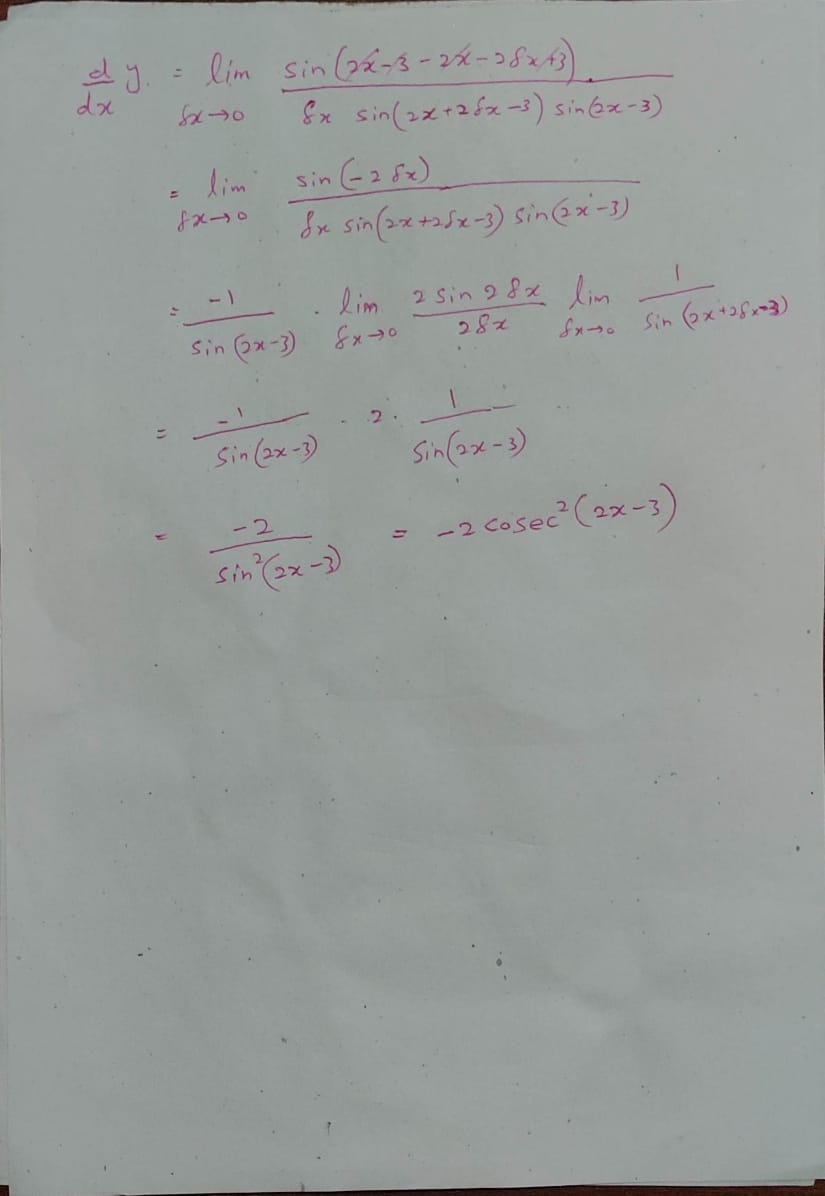 d/dx y. = lim δx→0 sin(2x-3-2x-2δx+3) / δx sin(2x+2δx-3) sin(2x-3)
= lim δx→0 sin(-2δx) / δx sin(2x+2δx-3) sin(2x-3)
= -1 / sin(2x-3) . lim δx→0 2 sin 2δx / 2δx lim δx→0 1 / sin(2x+2δx-3)
= -1 / Sin(2x-3) . 2 . 1 / Sin(2x-3)
= -2 / sin²(2x-3) = -2 cosec²(2x-3)